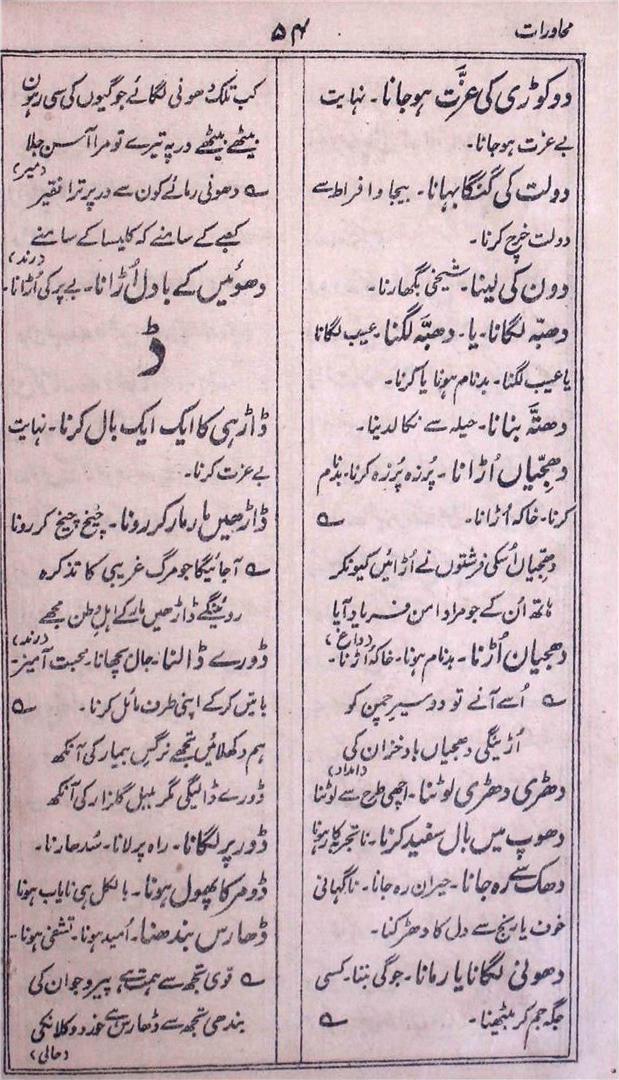 محاورات
۵۴
دو کوڑی کی عزّت ہو جانا۔ نہایت
بے عزت ہو جانا۔
دولت کی گنگا بہانا۔ بیجا و افراط سے
دولت خرچ کرنا۔
دون کی لینا۔ شیخی بگھارنا۔
دھبّہ لگانا۔ یا۔ دھبّہ لگنا۔ عیب لگانا
یا عیب لگنا۔ بدنام ہونا یا کرنا۔
دھتّہ بنانا۔ حیلہ سے نکالدینا۔
دھجّیاں اُڑانا۔ پُرزہ پُرزہ کرنا۔ بدنام
کرنا۔ خاکہ اُڑانا۔ ؎
دھجّیاں اُسکی فرشتوں نے اُڑائیں کیونکر
ہاتھ اُن کے جو مرا دامن فریاد آیا
(داغ)
دھجیاں اُڑنا۔ بدنام ہونا۔ خاکہ اُڑنا۔
؎ اُسے آنے تو دو سیرِ چمن کو
اُڑینگی دھجیاں بادِ خزاں کی
(امداد)
دھڑی دھڑی لوٹنا۔ اچھی طرح سے لوٹنا
دھوپ میں بال سفید کرنا۔ ناتجربہ کار ہونا
دھک سے رہ جانا۔ حیران رہ جانا۔ ناگہانی
خوف یا رنج سے دل کا دھڑکنا۔
دھونی لگانا یا رمانا۔ جوگی بننا۔ کسی
جگہ جم کر بیٹھنا۔ ؎
کب تلک دھونی لگائے جوگیوں کی سی رہوں
بیٹھے بیٹھے در پہ تیرے تو مرا آسن جلا
(میر)
؎ دھونی رمائے کون سے در پر ترا فقیر
کعبے کے سامنے کہ کلیسا کے سامنے
(رند)
دھوئیں کے بادل اُڑانا۔ بے پر کی اُڑانا۔
ڈ
ڈاڑہی کا ایک ایک بال کرنا۔ نہایت
بے عزت کرنا۔
ڈاڑھیں مار مار کر رونا۔ چیخ چیخ کر رونا
؎ آجائیگا جو مرگ غریبی کا تذکرہ
روئینگے ڈاڑھیں مار کے اہلِ وطن مجھے
(رند)
ڈورے ڈالنا۔ جال بچھانا۔ محبت آمیز۔
باتیں کر کے اپنی طرف مائل کرنا۔ ؎
ہم دکھلائیں تجھے نرگس بیمار کی آنکھ
ڈورے ڈالیگی مگر بلبل گلزار کی آنکھ
ڈور پر لگانا۔ راہ پر لانا۔ سُدھارنا۔
ڈومر کا پھول ہونا۔ بالکل ہی نایاب ہونا
ڈھارس بندھنا۔ اُمید ہونا۔ تشفی ہونا۔
؎ قوی تجھ سے ہمت ہے پیر و جواں کی
بندھی تجھ سے ڈھارس ہے خرد و کلاں کی
(حالی)